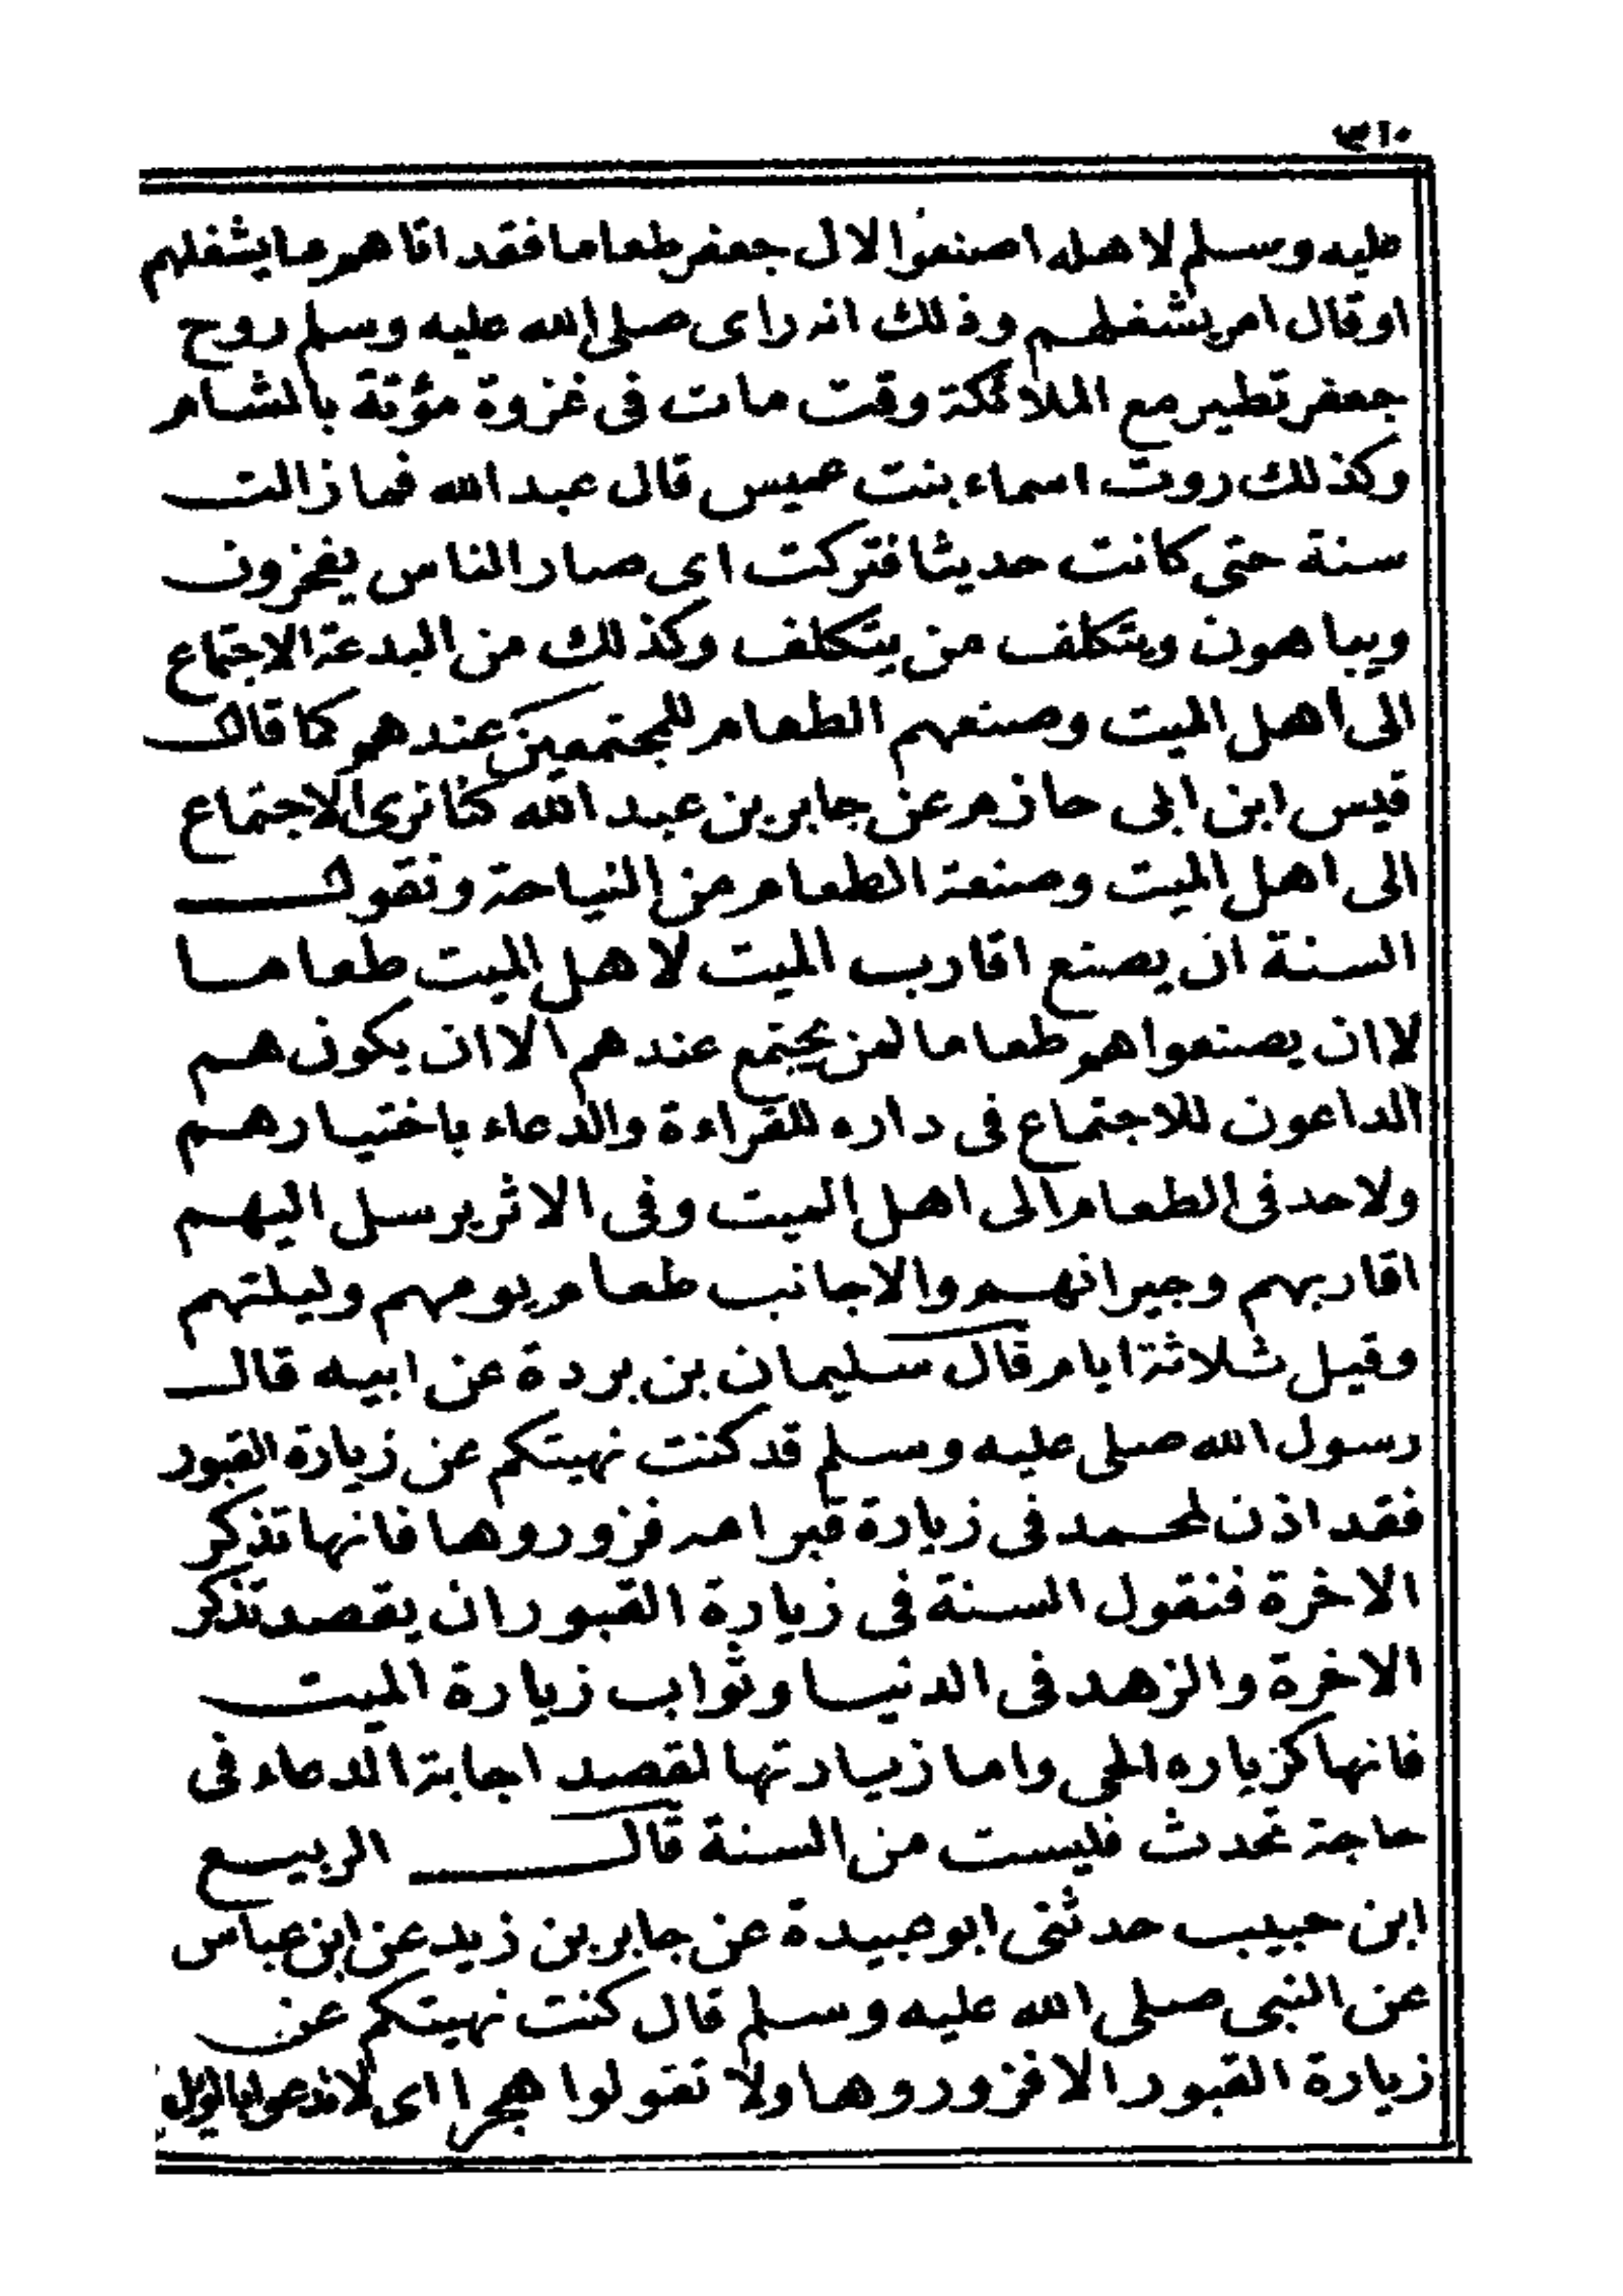 ٣١٠
عليه وسلم لاهله اصنعوا لال جعفر طعاما فقد اتاهم ما يشغلهم
او قال امر يشغلهم وذلك انه راى صلى الله عليه وسلم روح
جعفر تطير مع الملائكة وقت مات فى غزوة مؤتة بالشام
وكذلك روت اسماء بنت عميس قال عبد الله فما زالت
سنة حتى كانت حديثا فتركت اى صار الناس يفخرون
ويباهون ويتكلف من يتكلف وكذلك من البدعة الاجتماع
الى اهل الميت وصنعهم الطعام للمجتمعين عندهم كما قال
قيس ابن ابى حازم عن جابر بن عبد الله كنا نرى الاجتماع
الى اهل الميت وصنعة الطعام من النياحة ونقول
السنة ان يصنع اقارب الميت لاهل الميت طعاما
لا ان يصنعوا هم طعاما لمن يجتمع عندهم الا ان يكون هم
الداعون للاجتماع فى داره للقراءة والدعاء باختيارهم
ولاحد فى الطعام الى اهل الميت وفى الاثر يرسل اليهم
اقاربهم وجيرانهم والاجانب طعام يومهم وليلتهم
وقيل ثلاثة ايام قال سليمان بن بردة عن ابيه قال
رسول الله صلى عليه وسلم قد كنت نهيتكم عن زيارة القبور
فقد اذن لمحمد فى زيارة قبر امه فزوروها فانها تذكر
الاخرة فنقول السنة فى زيارة القبور ان يقصد تذكر
الاخرة والزهد فى الدنيا وثواب زيارة الميت
فانها كزياره الحى واما زيارتها لقصد اجابة الدعاء فى
حاجة تحدث فليست من السنة قال الربيع
ابن حبيب حدثنى ابو عبيدة عن جابر بن زيد عن ابن عباس
عن النبى صلى الله عليه وسلم قال كنت نهيتكم عن
زيارة القبور الا فزوروها ولا تقولوا هجرا اى لا تدعوا بالويل